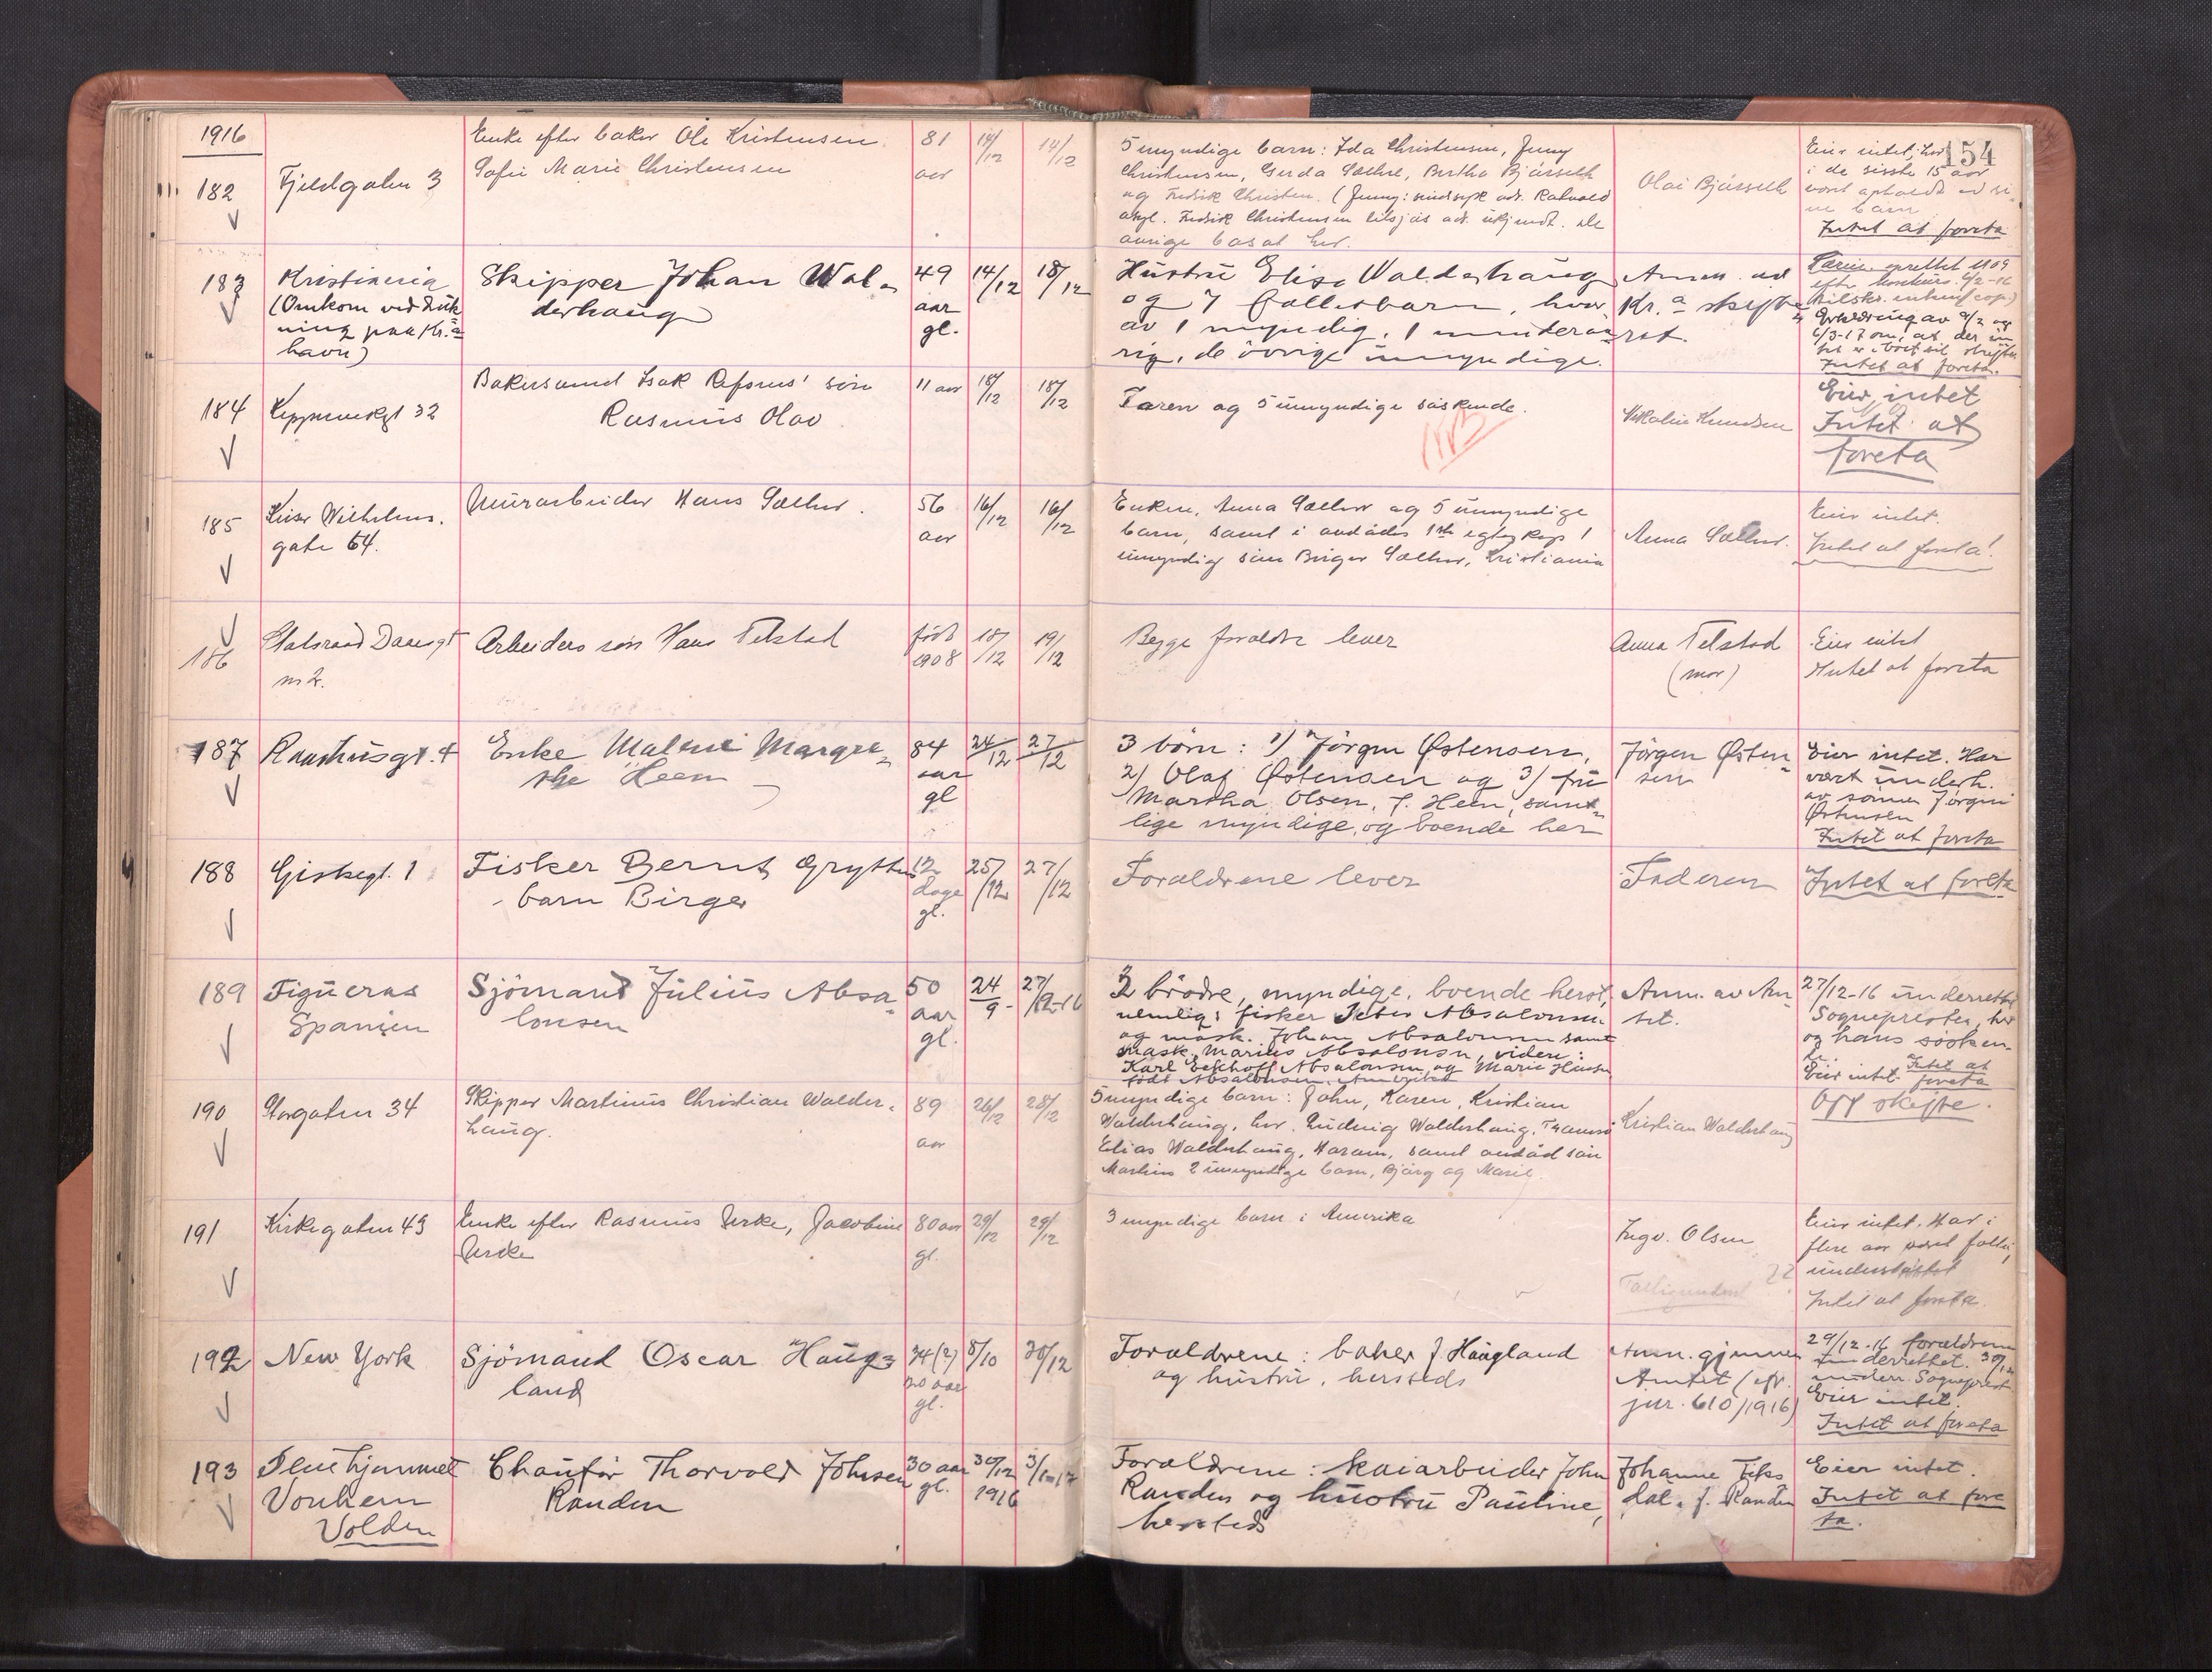 1916
154
182
Fjeldgaten 3
Enke efter baker Ole Kristensen
Sofie Marie Christensen
81
aar
14/12
14/12
5 myndige barn: Ida Christensen, Jenny
Christensen, Gerda Sæther, Bertha Bjørseth
og Fredrik Christen. (Jenny: sindsyk adr. Rotvold
asyl. Fredrik Christensen tilsjøs adr. ukjendt. De
øvrige bosat her.
Olai Bjørseth
Eier intet, har
i de sisste 15 aar
vært opholdt av si-
ne barn
Intet at foreta
183
Kristiania
(Omkom ved druk
ning paa Kr.a
havn)
Skipper Johan Wal-
derhaug
49
aar
gl.
14/12
18/12
Hustru Elise Walderhaug
og 7 fællesbarn, hvor
av 1 myndig, 1 mindreaa-
rig, de øvrige umyndige.
Anm. ved
Kr.a skifte-
ret.
efter konkurs
Erklæring av 9/2 og
6/3-17 om, at der in
tet er i boet til skifte
Intet at foreta.
184
Kippervikgt 32
Bakersvend Isak Refsnes' søn
Rasmus Olav
11 aar
18/12
18/12
Faren og 5 umyndige søskende.
Knudsen
Eier intet
Intet at
foreta
185
Keiser Wilhelms.
gate 64.
Murarbeider Hans Sæther.
56
aar
16/12
16/12
Enken, Anna Sæther og 5 umyndige
barn, samt i avdødes 1ste egteskap 1
umyndig søn Birger Sæther, Kristiania
Anna Sæther.
Eier intet.
Intet at foreta!
186
Statsraad Daaesgt
nr 2.
Arbeiders søn Hans Telstad
født
1908
18/12
19/12
Begge foraldre lever
Anna Telstad
(mor)
Eier intet
Intet at foreta
187
Raadhusgt. 4
Enke Maltine Margre-
the Heen
84
aar
gl
24/12
27/12
3 børn: 1) Jørgen Østensen,
2) Olaf Østensen og 3) fru
Martha Olsen, f. Heen, samt-
lige myndige, og boende her
Jørgen Østen-
sen
Eier intet. Har
vært underh.
av sønnen Jørgen
Østensen
Intet at foreta
188
Giskegt. 1
Fisker Bernt Gryttens
barn Birger
12
dage
gl.
25/12
27/12
Foraldrene lever
Faderen
Intet at foreta.
189
Figueras
Spanien
Sjömand Julius Absa-
lonsen
50
aar
gl.
24/9-
27/12-16
2 brødre, myndige, boende herst,
nemlig: fisker Peter Absalonsen
og mask. Johan Absalonsen samt
mask. Marius Absalonsen, videre:
Karl Eckhoff Absalonsen og Marie
født Absalonsen.
Anm. av Am
tet.
27/12-16 underrettet
Sogneprester her
og hans søsken-
de.
Eier intet. Intet at
foreta
190
Storgaten 34
Skipper Martinus Christian Walder-
haug.
89
aar
26/12
28/12
5 myndige barn: John, Karen, Kristian
Walderhaug, her. Ludvig Walderhaug, Tromsø
Elias Walderhaug, Haram, samt avdød søn
Martins 2 umyndige barn, Bjarg og Marie.
Kristian Walderhaug
Off skifte.
191
Kirkegaten 43
Enke efter Rasmus Urke, Jacobine
Urke
80 aar
gl.
29/12
29/12
3 myndige barn i Amerika
Ingv. Olsen
Eier intet. Har i
flere aar været fattig
understøttet
Intet at foreta.
192
New York
Sjömand Oscar Haug-
land
34 (?)
20 aar
gl.
8/10
30/12
Foraldrene: baker J. Haugland
og hustru, hersteds
Anm. gjennem
Amtet (cfr.
jnr. 610/1916)
29/12-16 forældrene
underrettet. 30/12
underr. Sogneprest.
Eier intet.
Intet at foreta
193
Pleiehjemmet
Volden
Chaufør Thorvald Johnsen
Randen
30 aar
gl.
30/12
1916
3/1-17
Foraldrene: kaiarbeider John
Randen og hustru Pauline,
hersteds
Johanne Fiks
dal, f. Randen
Eier intet.
Intet at fore
ta.